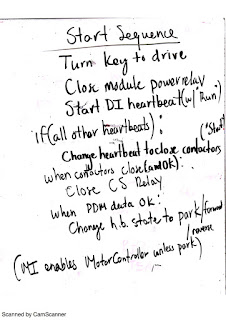 Start Sequence
Turn key to drive
Close module power relay
Start DI heartbeat (w/ "Run")
if (all other heartbeats):
Change heartbeat to close contactors ("Start")
when contactors close (and OK):
Close CS Relay
when PDM data OK:
Change h.b. state to park/forward/reverse
(DI enables MotorController unless park)
Scanned by CamScanner